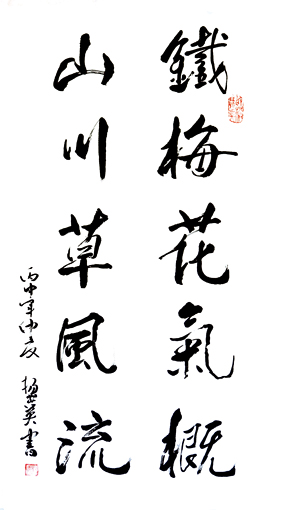 鐵梅花氣概
山川草風流
丙申年仲夏 楚英書